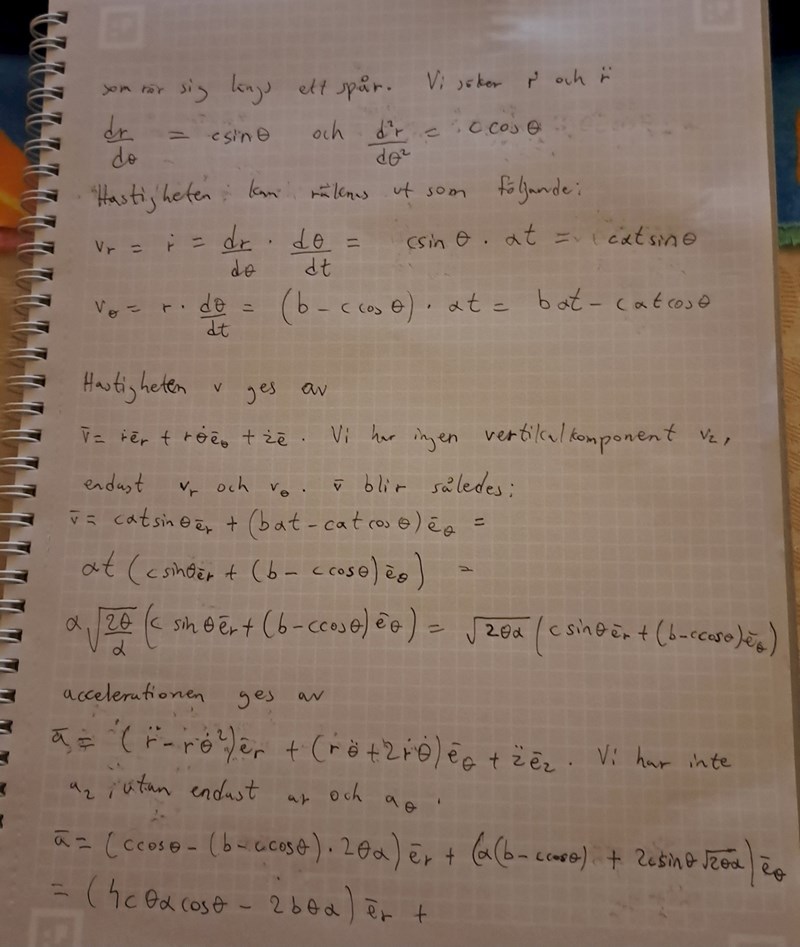 som rör sig längs ett spår. Vi söker ṙ och r̈
dr/dθ = csinθ och d²r/dθ² = c cosθ
Hastigheten kan räknas ut som följande:
v_r = ṙ = dr/dθ · dθ/dt = csinθ · αt = cαtsinθ
v_θ = r · dθ/dt = (b - c cosθ) · αt = bαt - cαtcosθ
Hastigheten v ges av
v̄ = ṙē_r + rθ̇ē_θ + żē. Vi har ingen vertikalkomponent v_z,
endast v_r och v_θ. v̄ blir således:
v̄ = cαtsinθē_r + (bαt - cαtcosθ)ē_θ =
αt (csinθē_r + (b - ccosθ)ē_θ) =
α√(2θ/α) (c sinθē_r + (b-ccosθ)ē_θ) = √(2θα) (csinθē_r + (b-ccosθ)ē_θ)
accelerationen ges av
ā = (r̈ - rθ̇²)ē_r + (rθ̈ + 2ṙθ̇)ē_θ + z̈ē_z. Vi har inte
a_z utan endast a_r och a_θ.
ā = (ccosθ - (b-ccosθ)·2θα)ē_r + (α(b-ccosθ) + 2csinθ√(2θα))ē_θ
= (4cθαcosθ - 2bθα)ē_r +